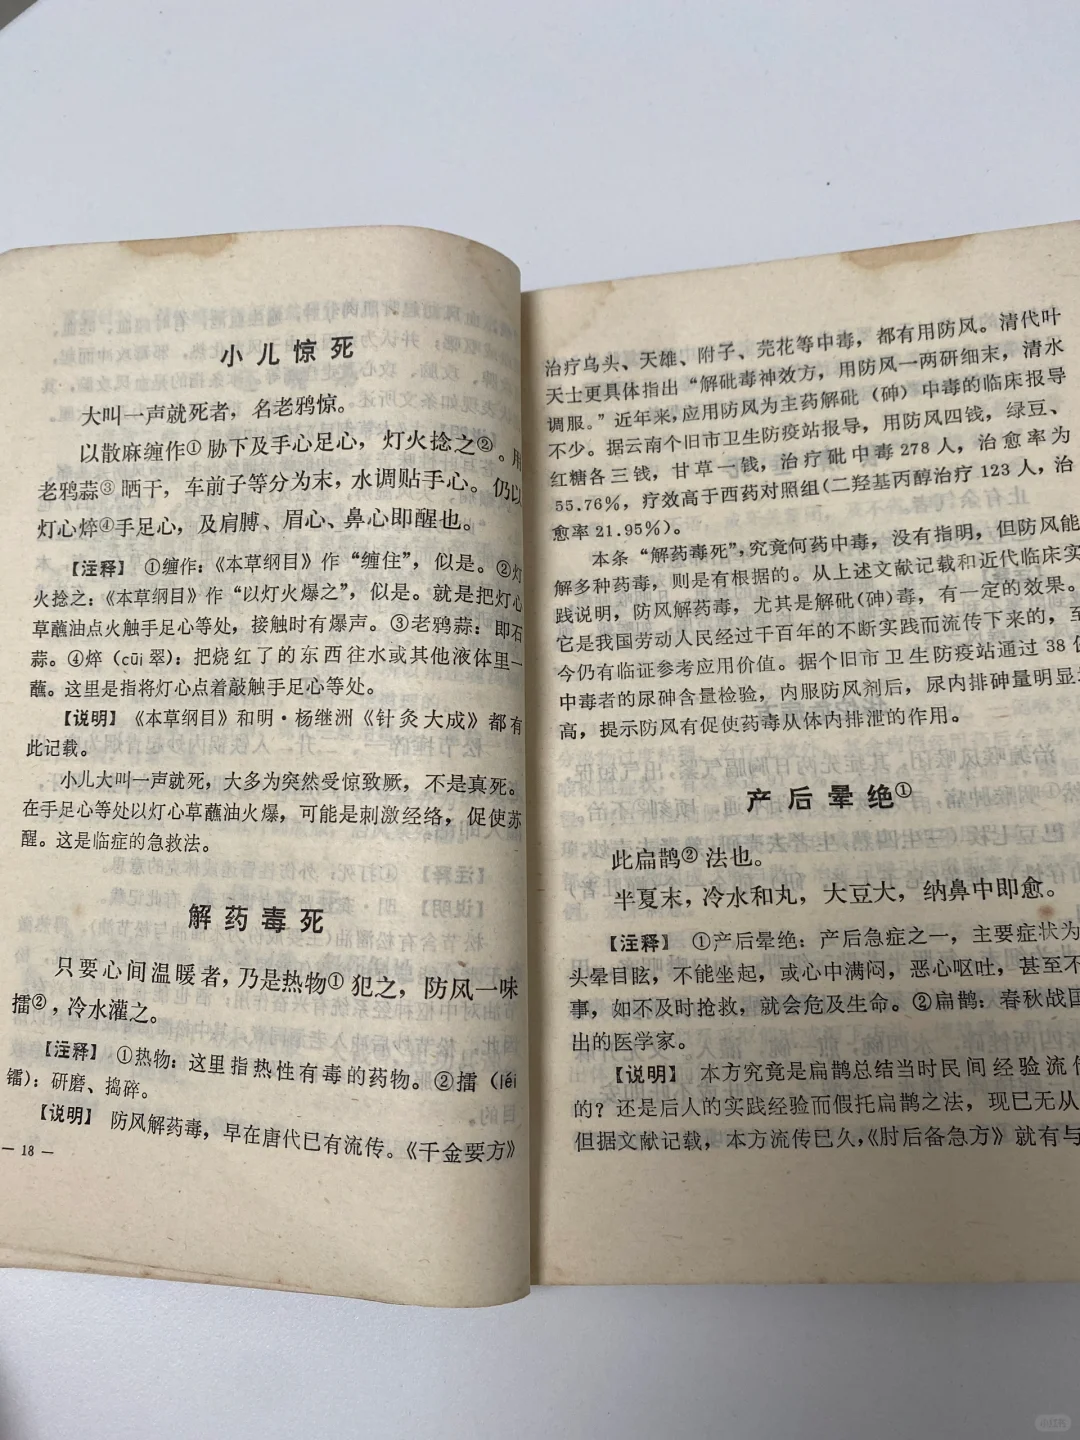 小儿惊死
大叫一声就死者，名老鸦惊。
以散麻缠作①胁下及手心足心，灯火捻之②。用
老鸦蒜③晒干，车前子等分为末，水调贴手心。仍以
灯心焠④手足心，及肩膊、眉心、鼻心即醒也。
【注释】 ①缠作：《本草纲目》作“缠住”，似是。②灯
火捻之：《本草纲目》作“以灯火爆之”，似是。就是把灯心
草蘸油点火触手足心等处，接触时有爆声。③老鸦蒜：即石
蒜。④焠（cūi 翠）：把烧红了的东西往水或其他液体里一
蘸。这里是指将灯心点着敲触手足心等处。
【说明】 《本草纲目》和明·杨继洲《针灸大成》都有
此记载。
小儿大叫一声就死，大多为突然受惊致厥，不是真死。
在手足心等处以灯心草蘸油火爆，可能是刺激经络，促使苏
醒。这是临症的急救法。
解药毒死
只要心间温暖者，乃是热物①犯之，防风一味
擂②，冷水灌之。
【注释】 ①热物：这里指热性有毒的药物。②擂（léi
镭）：研磨、捣碎。
【说明】 防风解药毒，早在唐代已有流传。《千金要方》
— 18 —
治疗乌头、天雄、附子、芫花等中毒，都有用防风。清代叶
天士更具体指出“解砒毒神效方，用防风一两研细末，清水
调服。”近年来，应用防风为主药解砒（砷）中毒的临床报导
不少。据云南个旧市卫生防疫站报导，用防风四钱，绿豆、
红糖各三钱，甘草一钱，治疗砒中毒 278 人，治愈率为
55.76％，疗效高于西药对照组（二羟基丙醇治疗 123 人，治
愈率 21.95％）。
本条“解药毒死”，究竟何药中毒，没有指明，但防风能
解多种药毒，则是有根据的。从上述文献记载和近代临床实
践说明，防风解药毒，尤其是解砒（砷）毒，有一定的效果。
它是我国劳动人民经过千百年的不断实践而流传下来的，至
今仍有临证参考应用价值。据个旧市卫生防疫站通过 38
中毒者的尿砷含量检验，内服防风剂后，尿内排砷量明显
高，提示防风有促使药毒从体内排泄的作用。
产后晕绝①
此扁鹊②法也。
半夏末，冷水和丸，大豆大，纳鼻中即愈。
【注释】 ①产后晕绝：产后急症之一，主要症状为
头晕目眩，不能坐起，或心中满闷，恶心呕吐，甚至不
事，如不及时抢救，就会危及生命。②扁鹊：春秋战国
出的医学家。
【说明】 本方究竟是扁鹊总结当时民间经验流传
的？还是后人的实践经验而假托扁鹊之法，现已无从
但据文献记载，本方流传已久，《肘后备急方》就有与
小红书